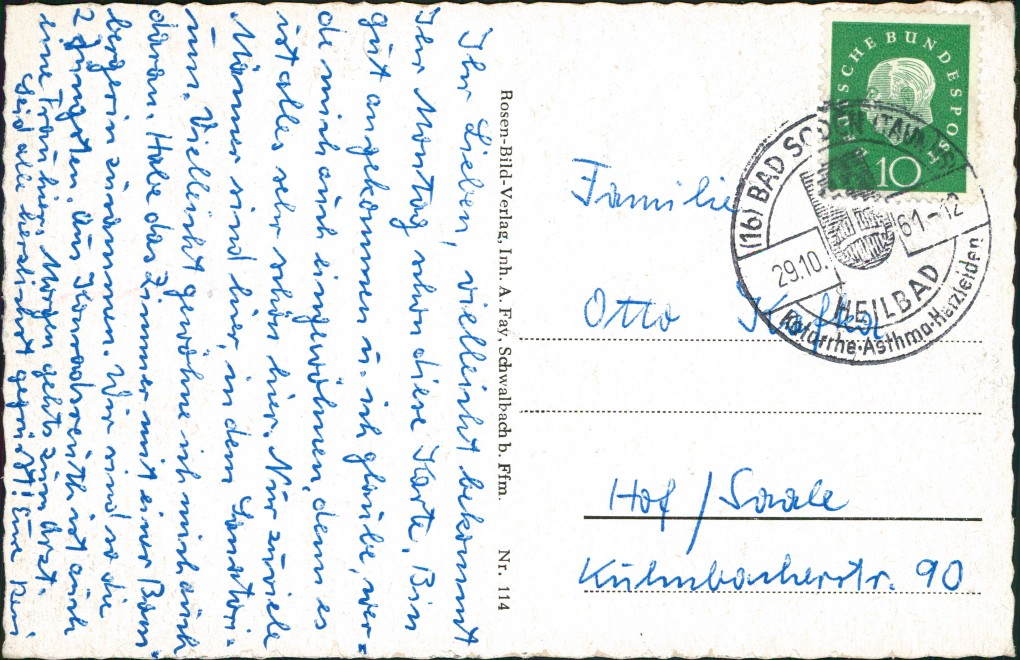 Ihr Lieben, vielleicht bekommt
Ihr Montag schon diese Karte. Bin
gut angekommen u. ich glaube, wer=
de mich auch eingewöhnen, denn es
ist alles sehr schön hier. Nur zuviele
Männer sind hier, in dem Sanatori=
um. Vielleicht gewöhne ich mich auch
daran. Habe das Zimmer mit einer Bam=
bergerin zusammen. Wir sind so die
2 Jüngsten. Aus Konradsreuth ist auch
eine Frau hier. Morgen gehts zum Arzt.
Seid alle herzlichst gegrüßt! Eure
Rosen-Bild-Verlag, Inh. A. Fay, Schwalbach b. Ffm. Nr. 114
DEUTSCHE BUNDESPOST
10
(16) BAD SODEN (TAUNUS)
29.10.61-12
HEILBAD
Katarrhe·Asthma·Herzleiden
Familie
Otto Kafka
Hof / Saale
Kulmbacherstr. 90